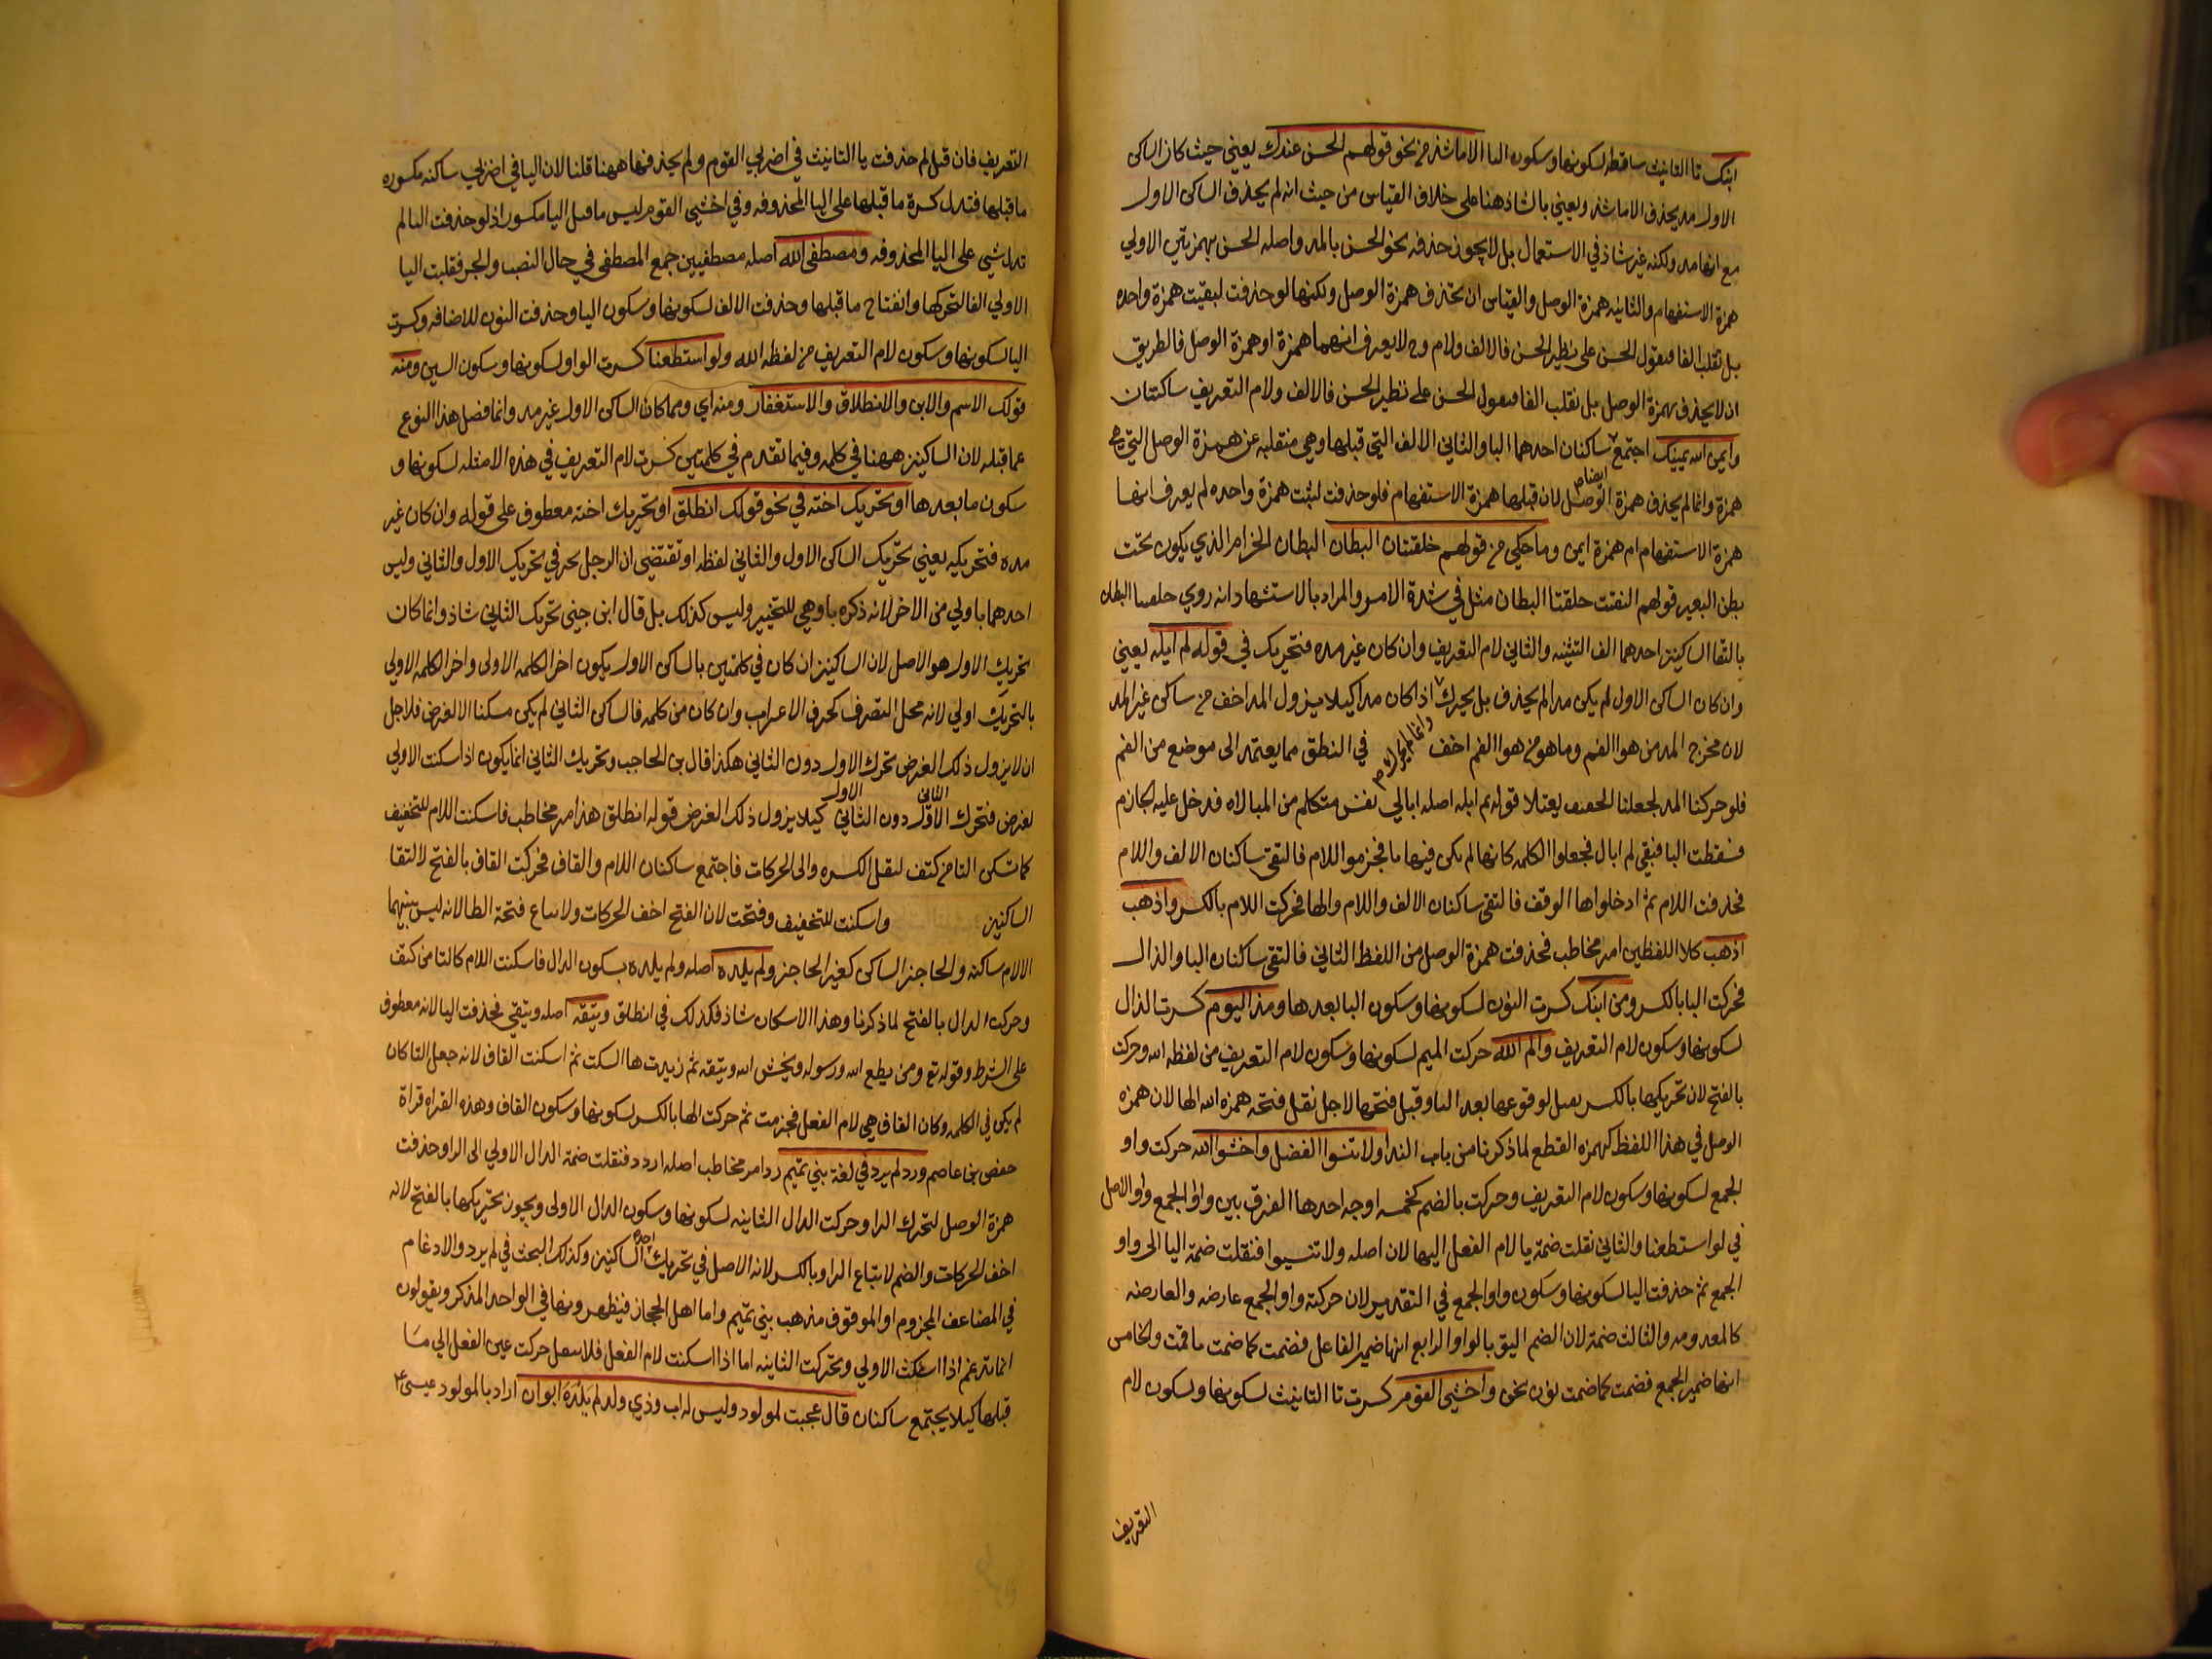 ابنك تا التانيث ساقطه لسكونها وسكون البا الا ما شذ من نحو قولهم الحسن عندك يعني حيث كان الساكن
الاول مد يحذف الا ما شذ ويعني بالشاذ هنا على خلاف القياس من حيث انه لم يحذف الساكن الاول
مع انها مد ولكنه غير شاذ في الاستعمال بل لا يجوز حذفه نحو الحسن بالمد واصله الحسن بهمزتين الاولي
همزة الاستفهام والثانيه همزة الوصل والقياس ان تحذف همزة الوصل ولكنها لو حذفت لبقيت همزة واحده
بل تقلب الفا فيقول الحسن على نظير الحسن فالالف ولام وح لا يعرف انهما همزة او همزة الوصل فالطريق
ان لا يحذف بهمزة الوصل بل تقلب الفا فيقول الحسن على نظير الحسن فالالف ولام التعريف ساكنتان
وايمن الله يمينك اجتمع ساكنان احدهما اليا والثاني الالف التي قبلها وهي منقلبه عن همزة الوصل التي
همزة وانما لم يحذف همزة الوصل ايضا لان قبلها همزة الاستفهام فلو حذفت لبثت همزة واحده لم يعرف انها
همزة الاستفهام ام همزة ايمن وما حكي من قولهم حلقتان البطان البطان الحزام الذي يكون تحت
بطن البعير قولهم التقت حلقتا البطان مثل في شدة الامر والمراد بالاستشهاد انه روي حلقتا البطان
بالتقا الساكنين احدهما الف التثنيه والثاني لام التعريف وان كان غير مده فتحريك في قوله لم ابله يعني
وان كان الساكن الاول لم يكن مدا لم يحذف بل يحرك اذا كان مدا كيلا يزول المد اخف من ساكن غير المد
لان مخرج المد من هوا الفم وما هو من هوا الفم اخف في النطق مما يعتمد الى موضع من الفم
فلو حركنا المد لجعلنا الخفيف ثقيلا قوله لم ابله اصله ابالي نفس متكلم من المبالاه فدخل عليه الجازم
فسقطت اليا فبقي لم ابال فجعلوا الكلمه كانها لم يكن فيها يا فجزموا اللام فالتقى ساكنان الالف واللام
فحذفت اللام ثم ادخلوا ها الوقف فالتقى ساكنان الالف واللام والها فحركت اللام بالكسر واذهب
اذهب كلا اللفظين امر مخاطب فحذفت همزة الوصل من اللفظ الثاني فالتقى ساكنان البا والذال
فحركت البا بالكسر ومن ابنك كسرت النون لسكونها وسكون البا بعدها ومذ اليوم كسرت الذال
لسكونها وسكون لام التعريف والم الله حركت الميم لسكونها وسكون لام التعريف من لفظه الله وحركت
بالفتح لان تحريكها بالكسر ثقيل لوقوعها بعد اليا وقيل فتحها لاجل نقل فتحه همزه الله الها لان همزه
الوصل في هذا اللفظ كهمزه القطع لما ذكرنا من باب الندا ولا تنسوا الفضل واخشوا الله حركت واو
الجمع لسكونها وسكون لام التعريف وحركت بالضم كخمسه اوجه احدها الفرق بين واو الجمع واو الاصل
في لو استطعنا والثاني نقلت ضمة يا لام الفعل اليها لان اصله ولا تنسيوا فنقلت ضمة اليا الى واو
الجمع ثم حذفت اليا لسكونها وسكون واو الجمع في التقدير لان حركته واو الجمع عارضه والعارضه
كالمعدومه والثالث ضمة لان الضم اليق بالواو الرابع انها ضمير الفاعل فضمت كما ضمت ما قمت والخامس
انها ضمير الجمع فضمت كما ضمت نون نحن واخشي القوم كسرت تا التانيث لسكونها ولسكون لام
التعريف
التعريف فان قيل لم حذفت يا التانيث في اضربي القوم ولم يحذفها ههنا قلنا لان اليا في اضربي ساكنه مكسوره
ما قبلها فتدل كسرة ما قبلها على اليا المحذوفه وفي اخشي القوم ليس ما قبل اليا مكسورا اذ لو حذفت اليا لم
تدل شي على اليا المحذوفه ومصطفى الله اصله مصطفيين جمع المصطفى في حال النصب والجر فقلبت اليا
الاولي الفا لتحركها وانفتاح ما قبلها وحذفت الالف لسكونها وسكون اليا وحذفت النون للاضافه وكسرت
اليا لسكونها وسكون لام التعريف من لفظه الله ولو استطعنا كسرت الواو لسكونها وسكون السين ومنه
قولك الاسم والابن والانطلاق والاستغفار ومنه اي ومما كان الساكن الاول غير مد وانما فصل هذا النوع
عما قبله لان الساكنين ههنا في كلمه وفيما تقدم في كلمتين كسرت لام التعريف في هذه الامثله لسكونها و
سكون ما بعدها او تحريك اخته في نحو قولك انطلق او تحريك اخته معطوف على قوله وان كان غير
مده فتحريكه يعني تحريك الساكن الاول والثاني لفظه او تقتضي ان الرجل يخير في تحريك الاول والثاني وليس
احدهما باولي من الاخر لانه ذكره باو هي للتخيير وليس كذلك بل قال ابن جني تحريك الثاني شاذ وانما كان
تحريك الاول هو الاصل لان الساكنين ان كان في كلمتين بالساكن الاول يكون اخر الكلمه الاولى واخر الكلمه الاولي
بالتحريك اولي لانه محل التصرف كحرف الاعراب وان كان من كلمه فالساكن الثاني لم يكن مسكنا الا لغرض فلاجل
ان لا يزول ذلك الغرض تحرك الاول دون الثاني هكذا قال بن الحاجب وتحريك الثاني انما يكون اذا سكنت الاولي
لغرض فتحرك الاول الثاني دون الثاني الاول كيلا يزول ذلك الغرض قوله انطلق هذا امر مخاطب فاسكنت اللام للتخفيف
كما تسكن التا من كتف لثقل الكسره والى الحركات فاجتمع ساكنان اللام والقاف فحركت القاف بالفتح لالتقا
الساكنين واسكنت للتخفيف وفتحت لان الفتح اخف الحركات ولاتباع فتحة الطا لانه ليس بينهما
الا لام ساكنه والحاجز الساكن كغير الحاجز ولم يلده اصله ولم يلده بسكون الدال فاسكنت اللام كالتا من كتف
وحركت الدال بالفتح لما ذكرنا وهذا الاسكان شاذ فكذلك في انطلق ويتقه اصله ويتقي فحذفت اليا لانه معطوف
على الشرط وقوله تع ومن يطع الله ورسوله ويخش الله ويتقه ثم زيدت ها السكت ثم اسكنت القاف لانه جعل التا كان
لم يكن في الكلمه وكان القاف هي لام الفعل فجزمت ثم حركت الها بالكسر لسكونها وسكون القاف وهذه القراه قراة
حفص بن عاصم ورد لم يرد في لغة بني تميم رد امر مخاطب اصله اردد فنقلت ضمة الدال الاولي الى الرا وحذفت
همزة الوصل لتحرك الرا وحركت الدال الثانيه لسكونها وسكون الدال الاولى ويجوز تحريكها بالفتح لانه
اخف الحركات والضم لاتباع الرا وبالكسر لانه الاصل في تحريك احد الساكنين وكذلك البحث في لم يرد والادغام
في المضاعف المجزوم او الموقوف مذهب بني تميم واما اهل الحجاز فيظهرونها في الواحد المذكر ويقولون
انما تدغم اذا اسكنت الاولي وتحركت الثانيه اما اذا اسكنت لام الفعل فلا حركت عين الفعل الي ما
قبلها كيلا يجتمع ساكنان قال عجبت لمولود وليس له اب وذي ولد لم يلده ابوان اراد بالمولود عيسى